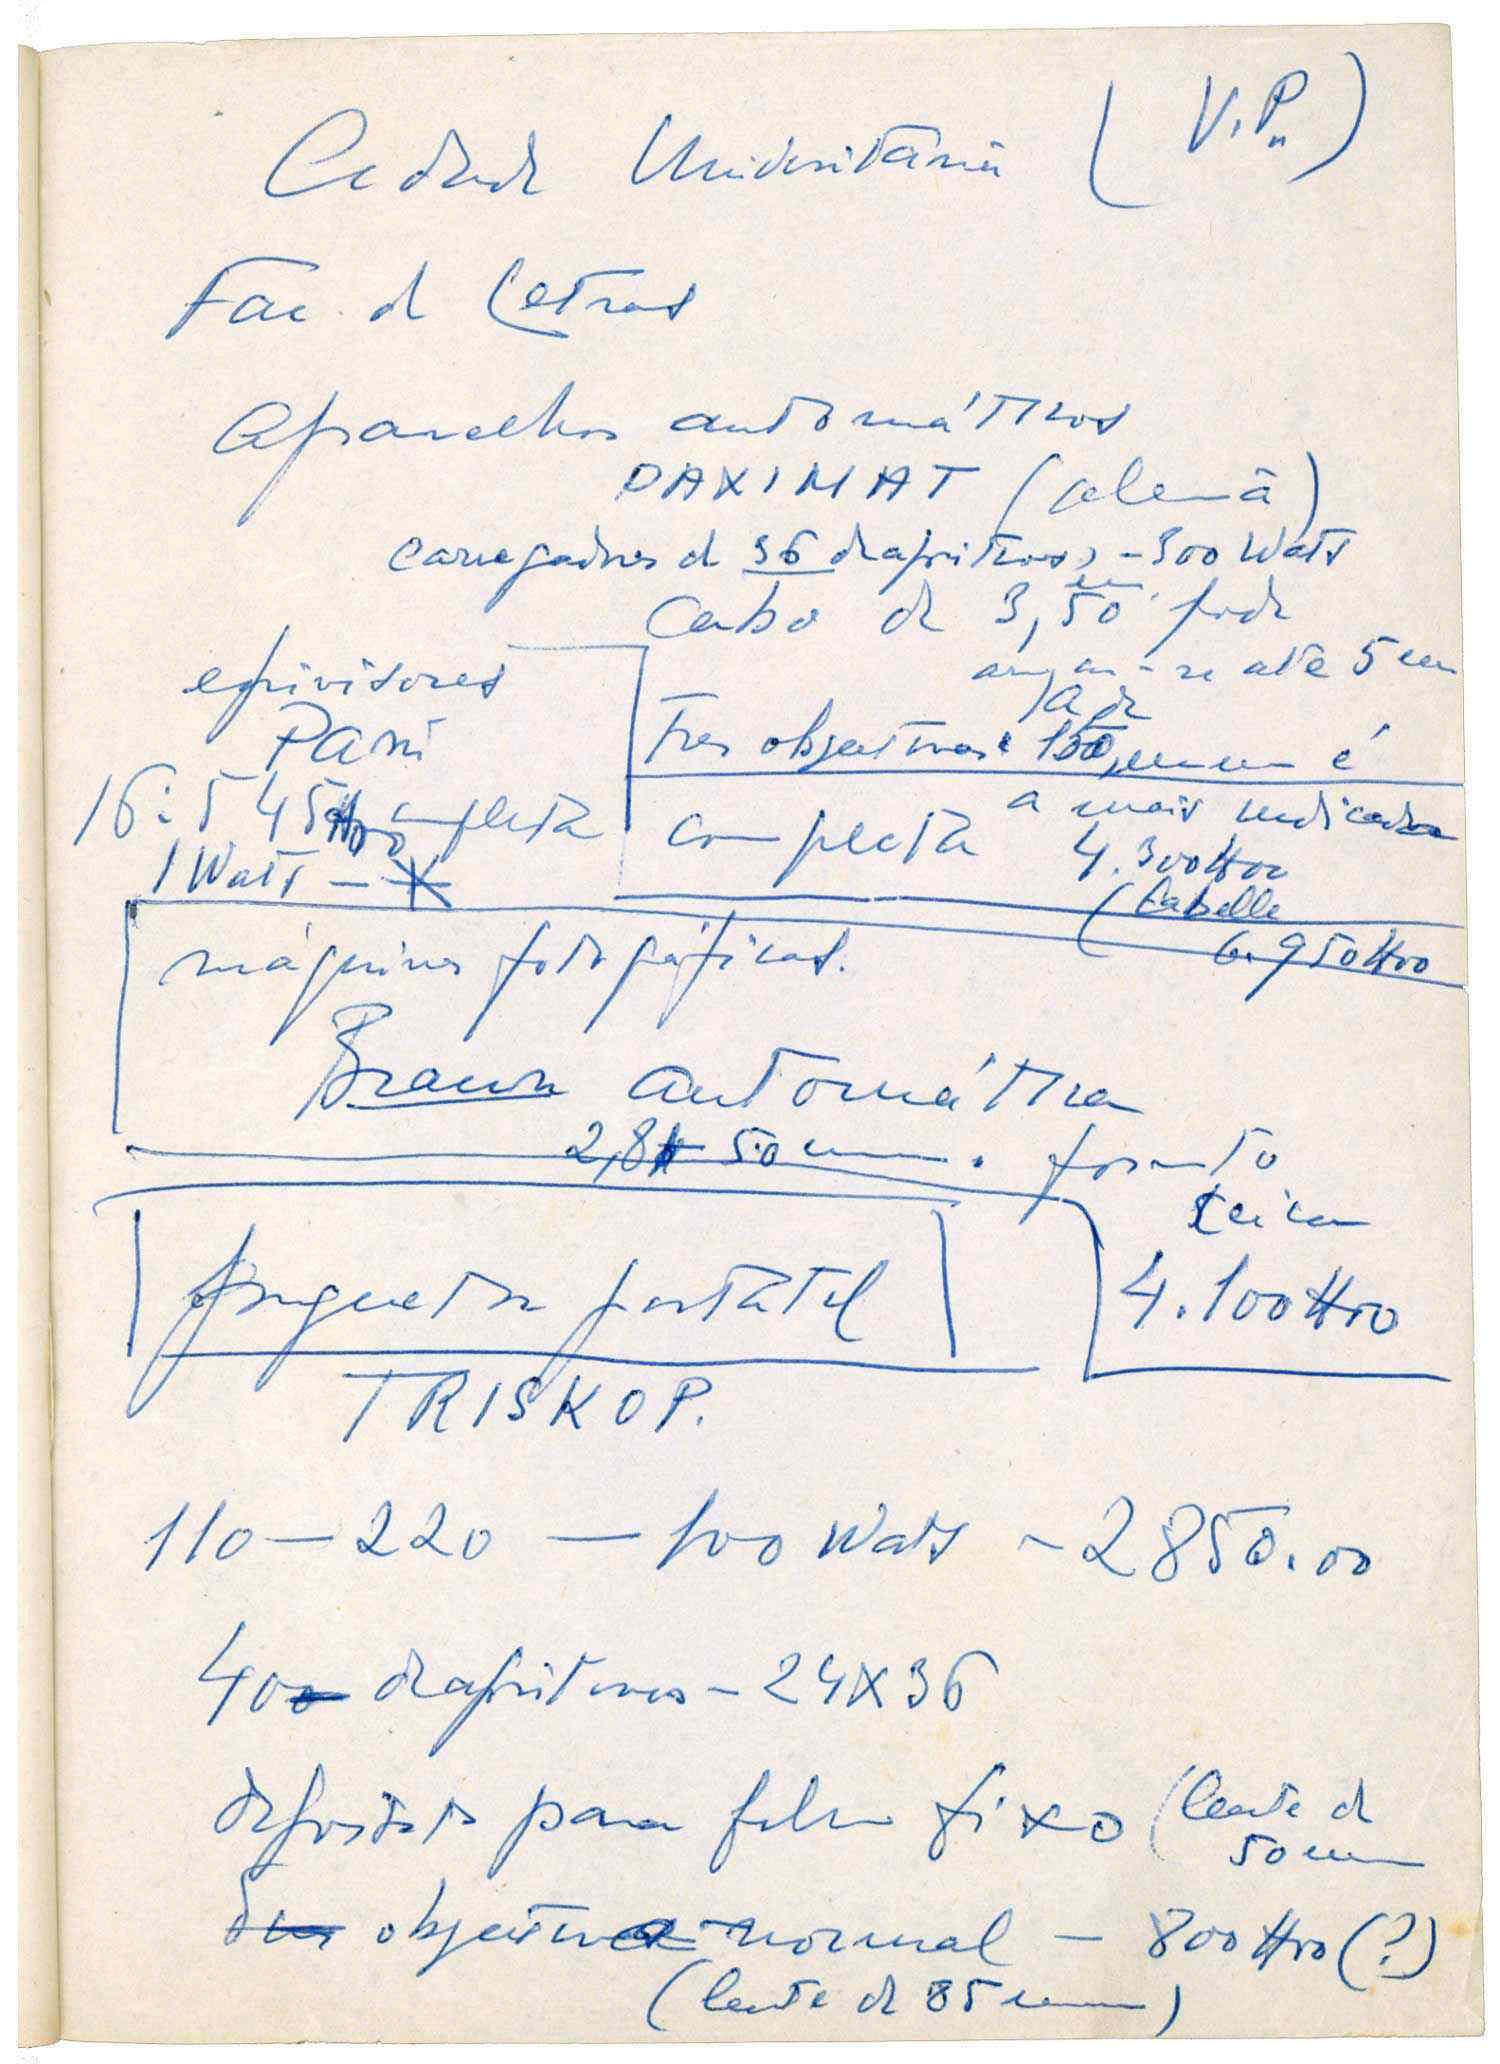 Cidade Universitária (V.P.)
Fac. de Letras
Aparelhos automáticos
PAXIMAT (alemã)
carregadores de 36 diapositivos, - 300 Watts
Cabo de 3,50 m pode
até 5 m
epivisores
Pani
A de
Tres objectivas: 150 mm é
16:545$00 completa
a mais indicada
completa 4.300$00
1 Watt -
(Cabelle
6.950$00
máquinas fotográficas.
Braun automática
2,8 50 mm. formato
Leica
4.100$00
projector portátil
TRISKOP.
110 - 220 - 100 Watts - 2850.00
40 diapositivos - 24X36
para filme fixo (lente de
50 mm
objectiva normal - 800$00 (?)
(lente de 85 mm)